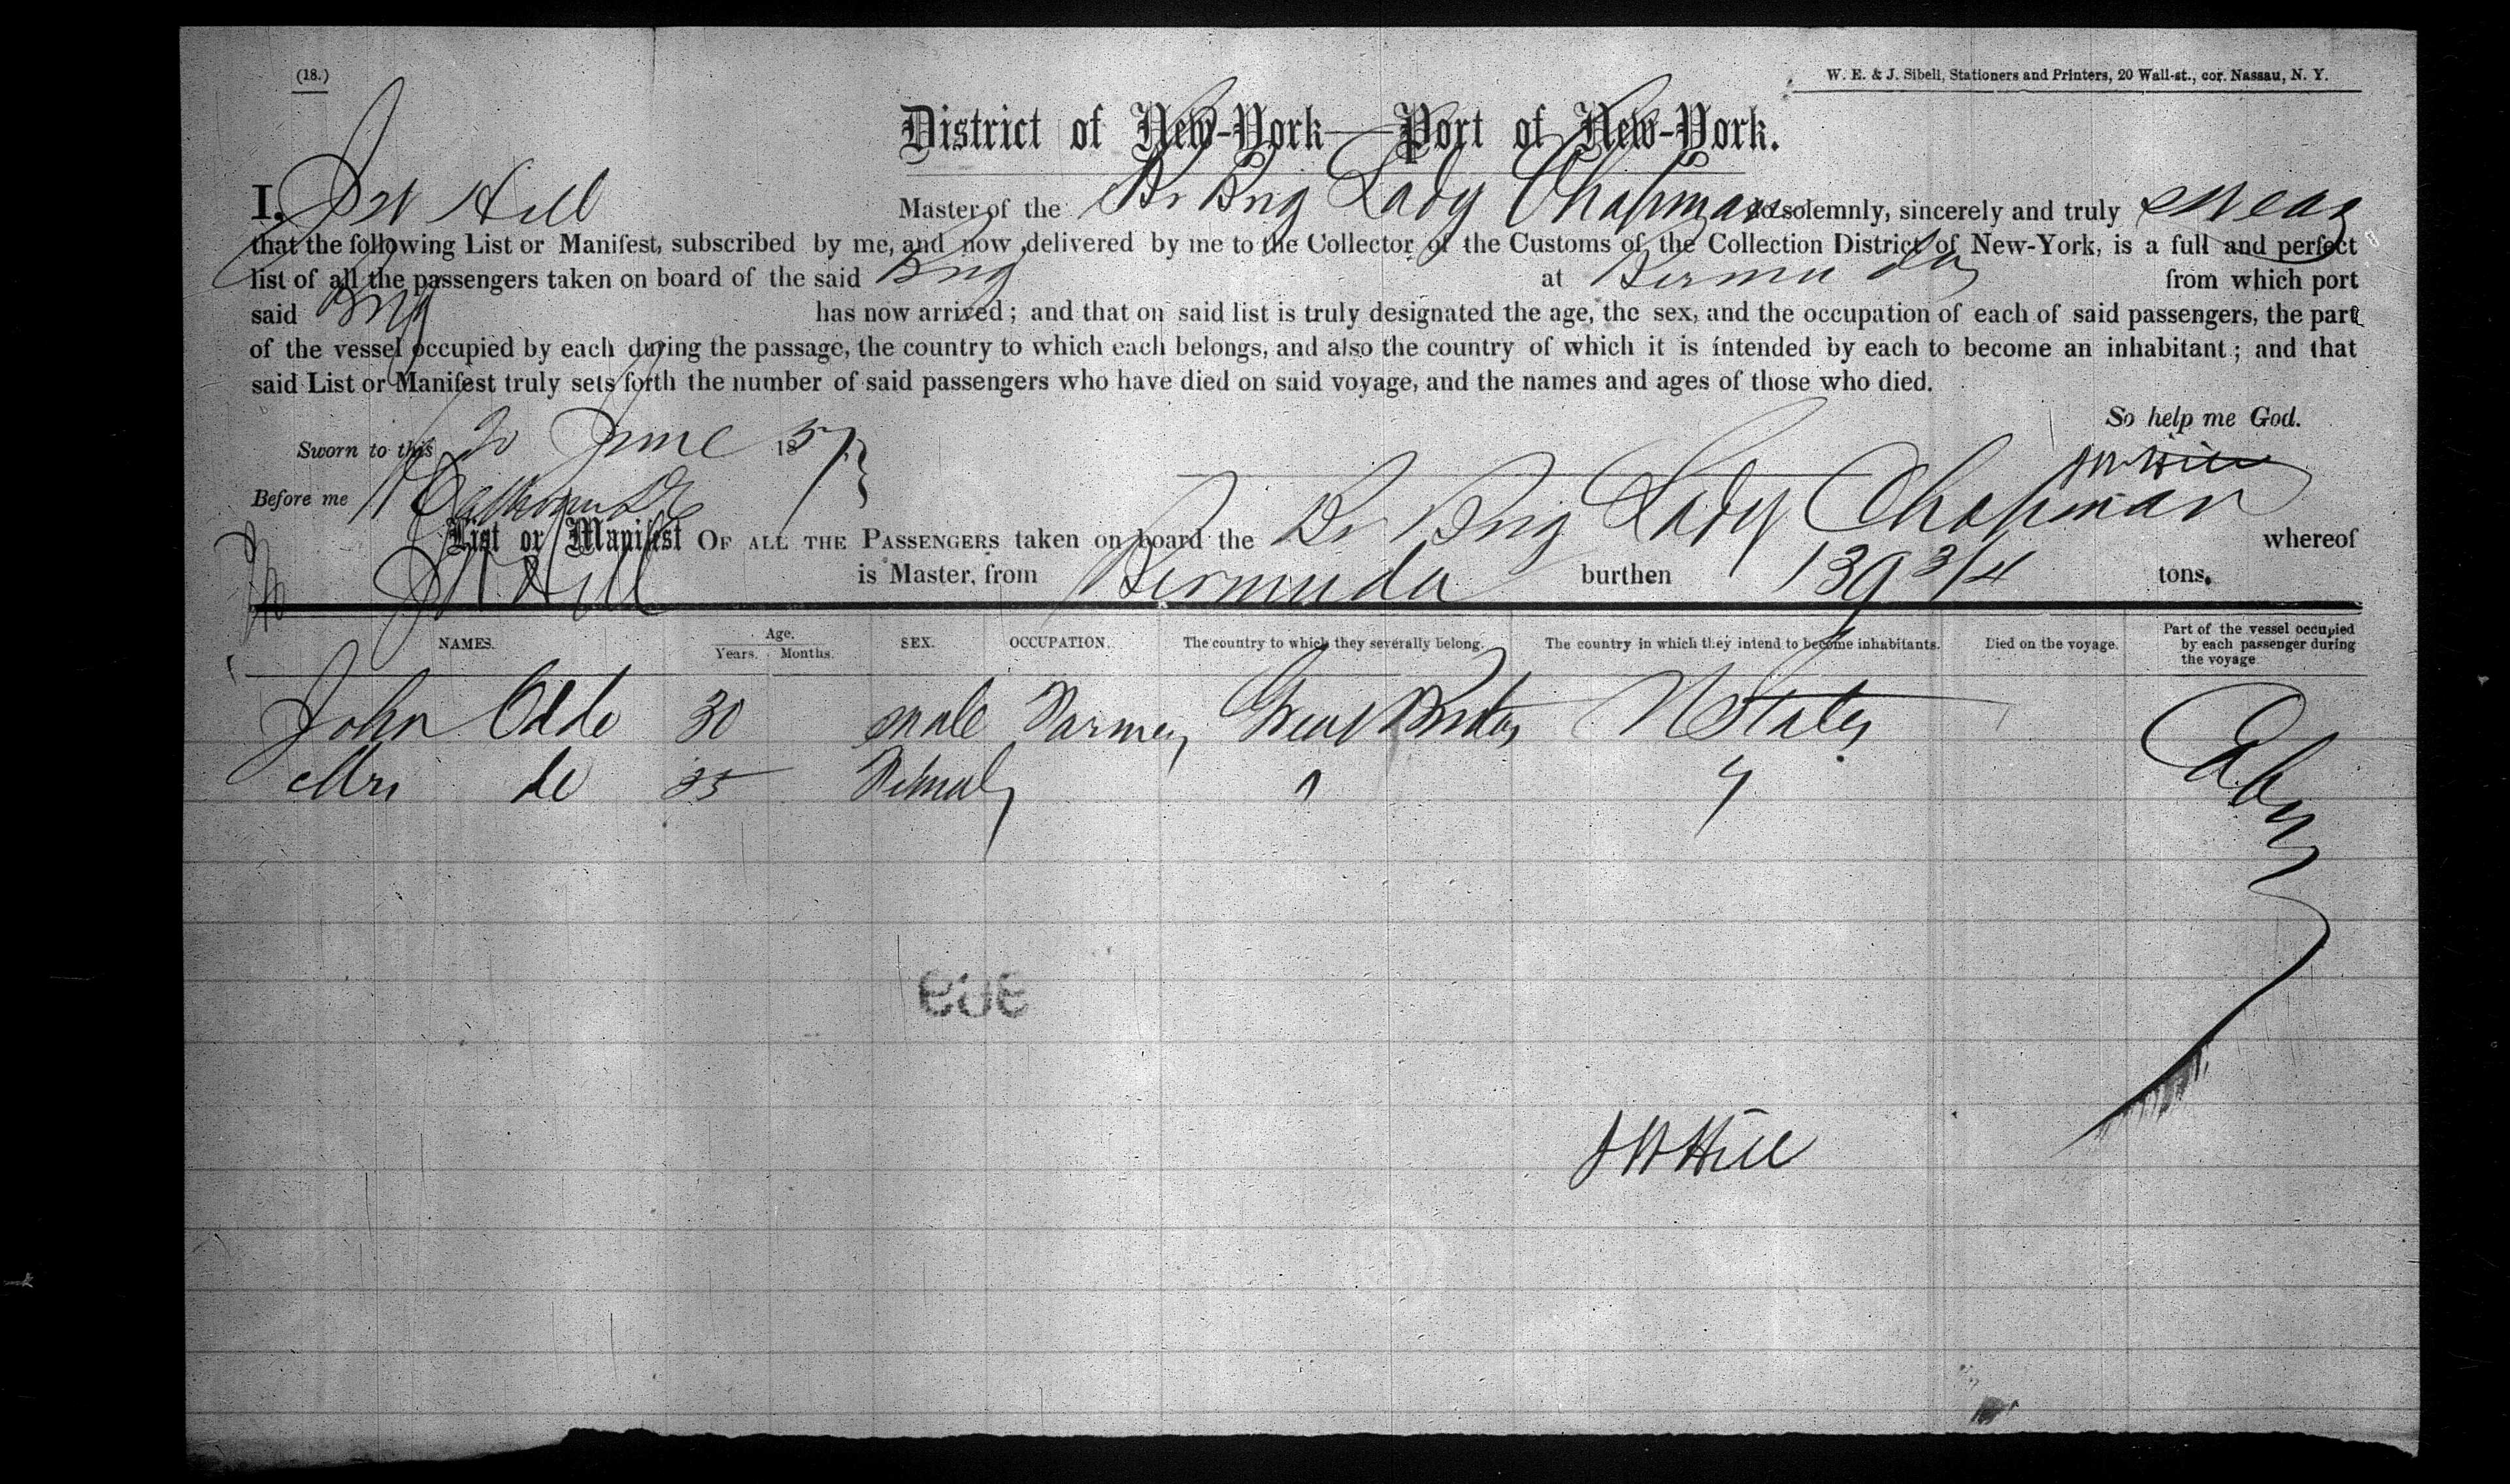 (18.)
W. E. & J. Sibell, Stationers and Printers, 20 Wall-st., cor. Nassau, N. Y.
District of New-York—Port of New-York.
I, J W Hill Master of the Br Brig Lady Chapman do solemnly, sincerely and truly swear
that the following List or Manifest, subscribed by me, and now delivered by me to the Collector of the Customs of the Collection District of New-York, is a full and perfect
list of all the passengers taken on board of the said Brig at Bermuda from which port
said Brig has now arrived; and that on said list is truly designated the age, the sex, and the occupation of each of said passengers, the part
of the vessel occupied by each during the passage, the country to which each belongs, and also the country of which it is intended by each to become an inhabitant; and that
said List or Manifest truly sets forth the number of said passengers who have died on said voyage, and the names and ages of those who died.
So help me God.
Sworn to this 30 June 1857
J W Hill
Before me
List or Manifest OF ALL THE PASSENGERS taken on board the Br Brig Lady Chapman whereof
J W Hill is Master, from Bermuda burthen 139 3/4 tons.
NAMES. Age. Years. Months. SEX. OCCUPATION. The country to which they severally belong. The country in which they intend to become inhabitants. Died on the voyage. Part of the vessel occupied by each passenger during the voyage
John 30 male Farmer Great Britain U States Cabin
Mrs do 35 Female " "
303
J W Hill